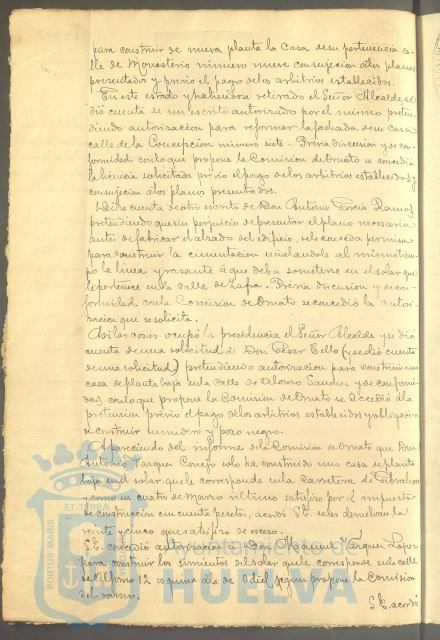 para construir de nueva planta la Casa de su pertenencia ca-
lle de Monasterio número nueve con sujeción a los planos
presentados y previo el pago de los arbitrios establecidos.
En este estado y habiendose retirado el Señor Alcalde, se
dió cuenta de un escrito autorizado por el mismo preten-
diendo autorizacion para reformar la fachada de su Casa
calle de la Concepcion número siete. Previa discusion y de con-
formidad con lo que propone la Comision de Ornato se concedió
la licencia solicitada previo el pago de los arbitrios establecidos y
con sujecion a los planos presentados.
Dióse cuenta de otro escrito de Don Antonio García Ramos
pretendiendo que sin perjuicio de presentar el plano necesario
antes de fabricar el alzado del edificio, se le conceda permiso
para construir la cimentacion señalandole al mismo tiem-
po la linea y rasante á que deba someterse en el solar que
le pertenece en la calle de Zafra. Previa discusion y de con-
formidad con la Comision de Ornato se concedió la autori-
zacion que se solicita.
Asi las cosas ocupó la presidencia el Señor Alcalde y se dió
cuenta de una solicitud de Don César Tello (y se dió cuenta
de una solicitud) pretendiendo autorizacion para construir una
casa de planta baja en la calle de Alonso Sanchez y de conformi-
dad con lo que propone la Comision de Ornato se accedió á la
pretension previo el pago de los arbitrios establecidos y obligacion
de construir sumidero y pozo negro.
Apareciendo del informe de la Comision de Ornato que Don
Antonio Vazquez Conejo solo ha construido una casa de planta
baja en el solar que le corresponde en la Carretera de Gibraleon
y como en cuatro de Marzo último satisfizo por el impuesto
de construccion cincuenta pesetas, acordó S.E. se les devuelvan las
veinte y cinco que satisfizo de exceso.
S.E. concedió autorizacion a Don Manuel Vazquez Lopez
para construir los cimientos del solar que le corresponde en la calle
de Alfonso 12 esquina á la de Odiel segun propone la Comision
del ramo.
S.E. acordó
PORTUS MARIS
ET TERRÆ
Ayuntamiento de
HUELVA